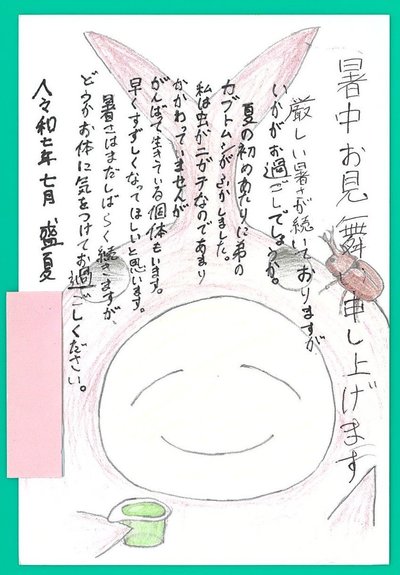 暑中お見舞い申し上げます
厳しい暑さが続いておりますが、
いかがお過ごしでしょうか。
夏の初めあたりに弟の
カブトムシがふかしました。
私は虫がニガテなのであまり
かかわっていませんが
がんばって生きている個体もいます。
早くすずしくなってほしいと思います。
暑さはまだしばらく続きますが、
どうかお体に気をつけてお過ごしください。
令和七年七月 盛夏